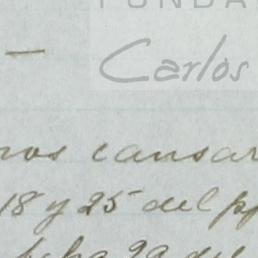 FUNDA
Carlos
—
nos cansar
18 y 25 del pp
fcha 29 del